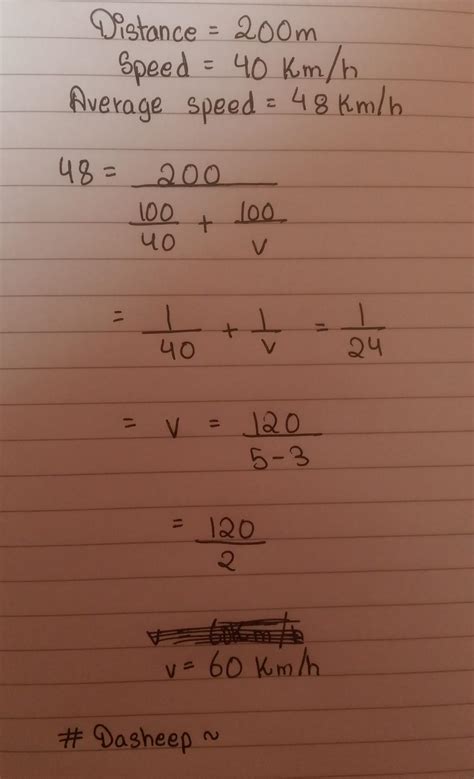 Distance = 200m
Speed = 40 Km/h
Average speed = 48 Km/h
48 = 200 / (100/40 + 100/v)
= 1/40 + 1/v = 1/24
= v = 120 / 5-3
= 120/2
v = 60 Km/h
v = 60 Km/h
# Dasheep ~